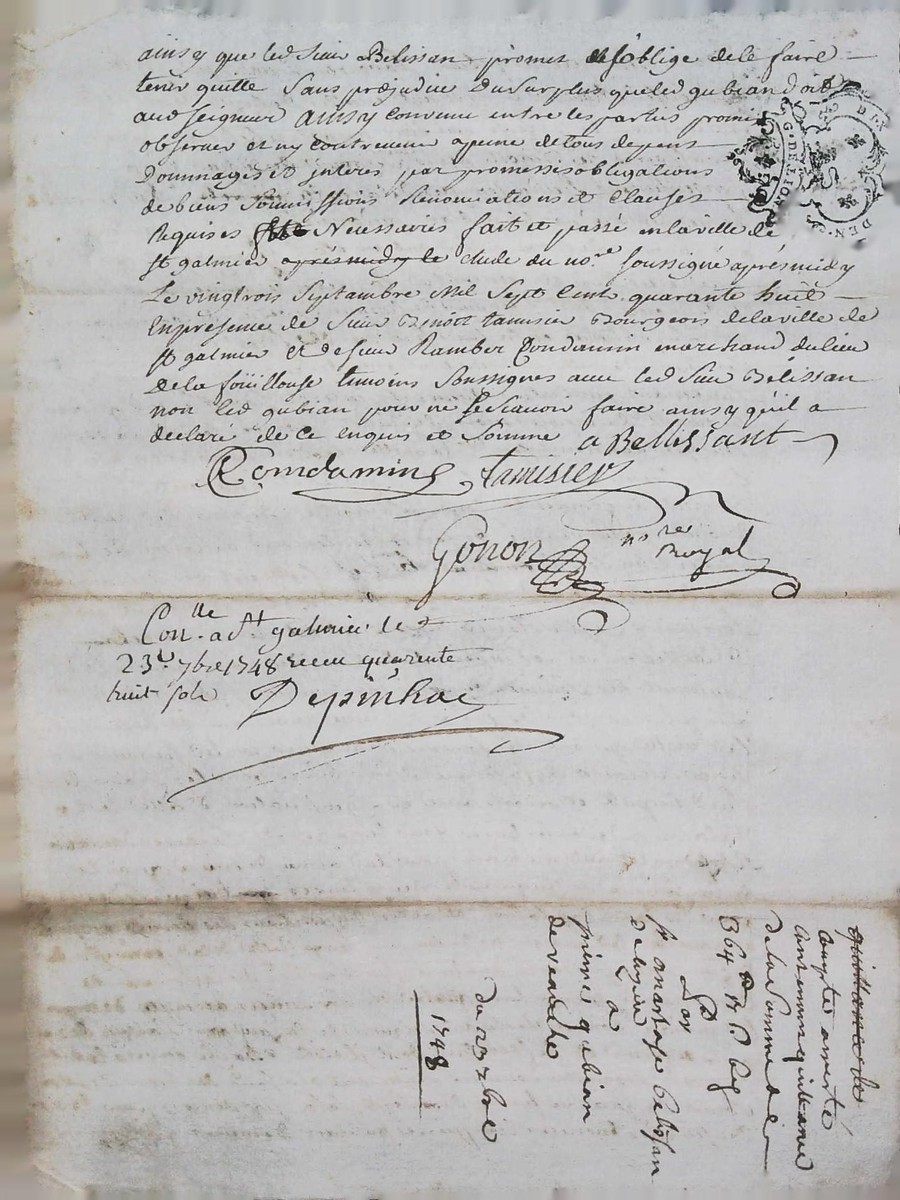 ainsy que led sieur Belissan promet et s'oblige de le faire
tenir quitte sans prejudice du surplus que led gubian doit
aud seigneur ainsy convenu entre les parties promis
observer et ny contrevenir a peine de tous depens
Dommages et interes par promesses obligations
de biens soumissions Renonciations et Clauses
Requises Necessaires fait et passé en la ville de
st galmier aprés midy le etude du no.re soussigné aprés midy
Le vingt trois Septambre Mil Sept Cent quarante huit
En presence de sieur Benoit tamisier Bourgeois de la ville de
st galmier et de sieur Rambert Condamin marchand du lieu
De la foüillouse temoins soussignes avec led sieur Belissan
non led gubian pour ne le scavoir faire ainsy qu'il a
declaré de ce enquis et sommé a Bellissant
Comdamin Tamisier
Gonon no.re Royal
Con.lle a St galmier le
23e 7bre 1748 receu quarente
huit sols Depinhac
G. DE LION
quittance de
compte arresté
contenant quittance
de la somme de
364
Par
sr anastaze belissan
a
pierre gubian
de veauche
du 23 7bre
1748